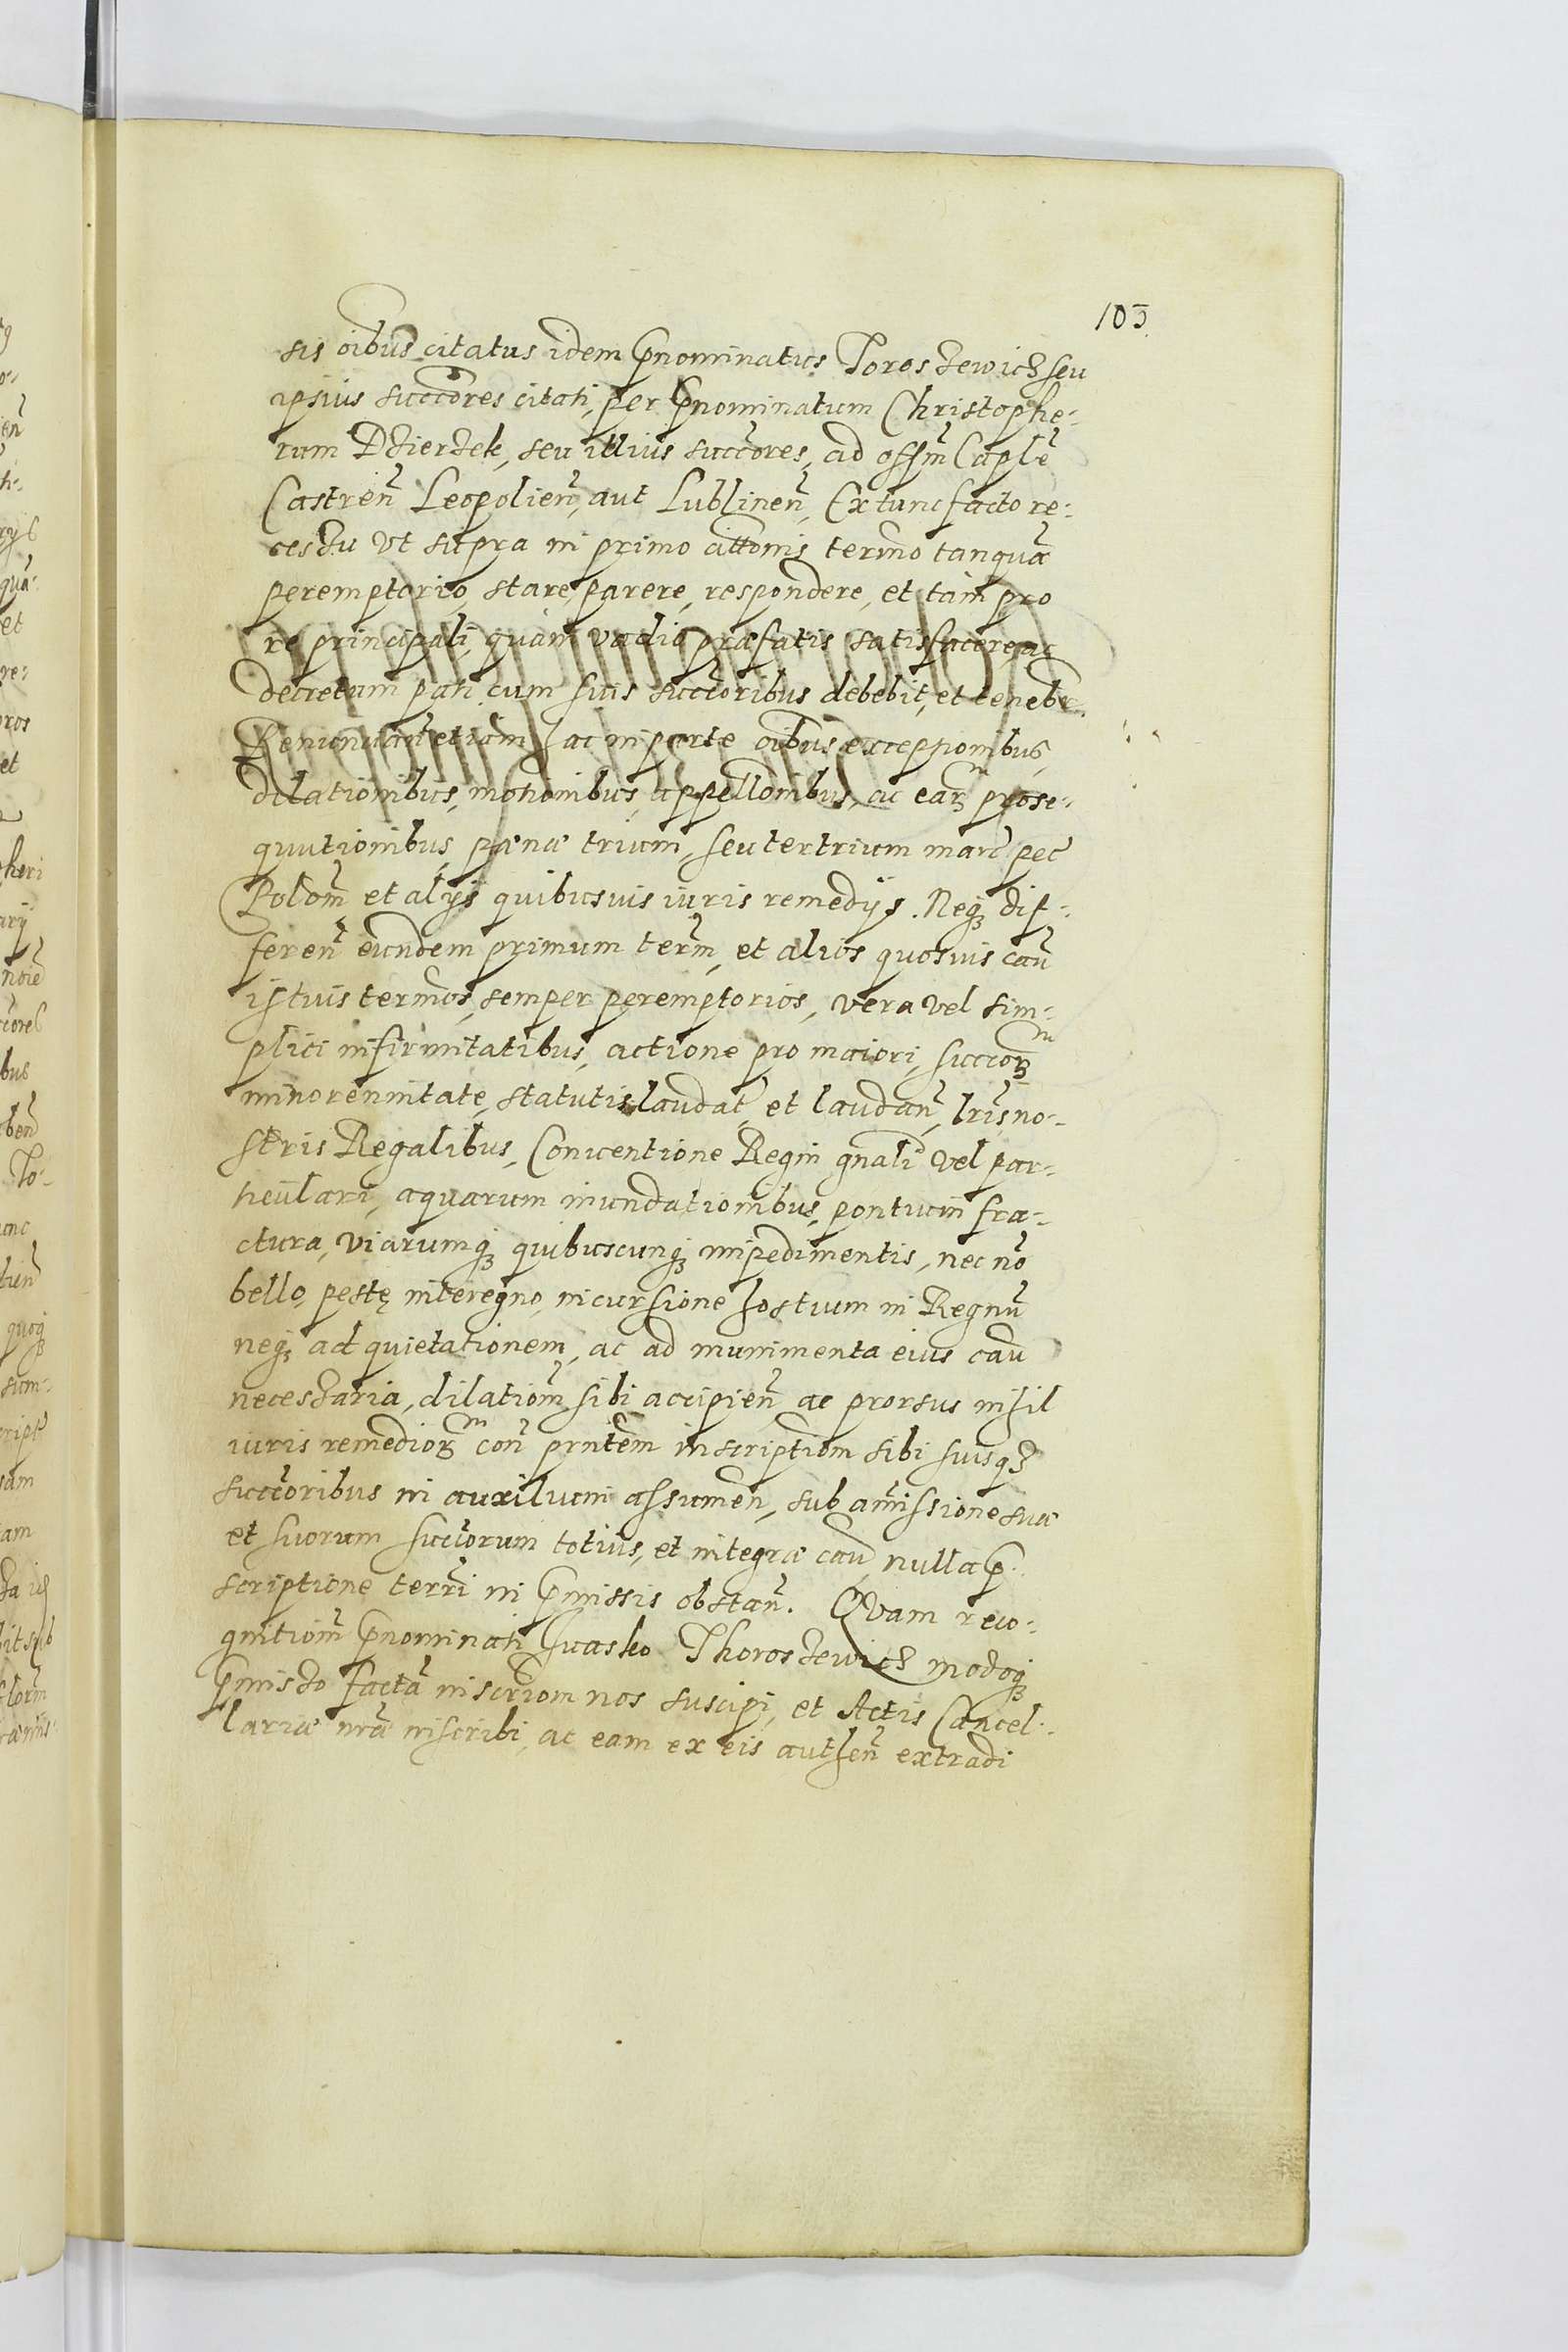 103
sis oibus citatus idem pnominatus Toroszewicz seu
ipsius succores citati, per pnominatum Christophe-
rum Dzierzek, seu illius succores, ad offm Caple
Castren Leopolien, aut Lublinen, Ex tunc facto re-
cessu vt supra in primo attonis termo tanqua
peremptorio, stare, parere, respondere, et tam pro
re principali, quam vadio præfatis satisfacere, ac
decretum pati cum suis succoribus debebit, et teneb
Renunciat etiam hac in parte oibus exceptionibus,
dilationibus, motionibus, appellonibus, ac earum prose-
quutionibus, pœnæ trium, seu ter trium marc pec
Polom et alijs quibusuis iuris remedijs. Neq dif-
feren eundem primum term, et alios quosuis cau
istius termos, semper peremptorios, vera vel sim-
plici infirmitatibus, actione pro maiori, succorum
minorennitate, statutis laudat et laudan, lris no-
stris Regalibus, Conuentione Regni gnali vel par-
ticulari, aquarum inundationibus, pontium fra-
ctura, viarumq quibuscunq impedimentis, nec no
bello, peste, interegno, incursione hostium in Regnu
neq ad quietationem, ac ad munimenta eius cau
necessaria, dilatiom sibi accipien ac prorsus nihil
iuris remediorum con pntem inscriptiom sibi suisq
succoribus in auxilium assumen, sub amissione suæ
et suorum succorum totius, et integræ cau, nulla p-
scriptione terri in pmissis obstan. Quam reco-
gnitiom pnominati Iwasko Thoroszewicz modoq
pmisso facta inscriom nos suscipi, et Actis Cancel-
lariæ nræ inscribi, ac eam ex eis authen extradi